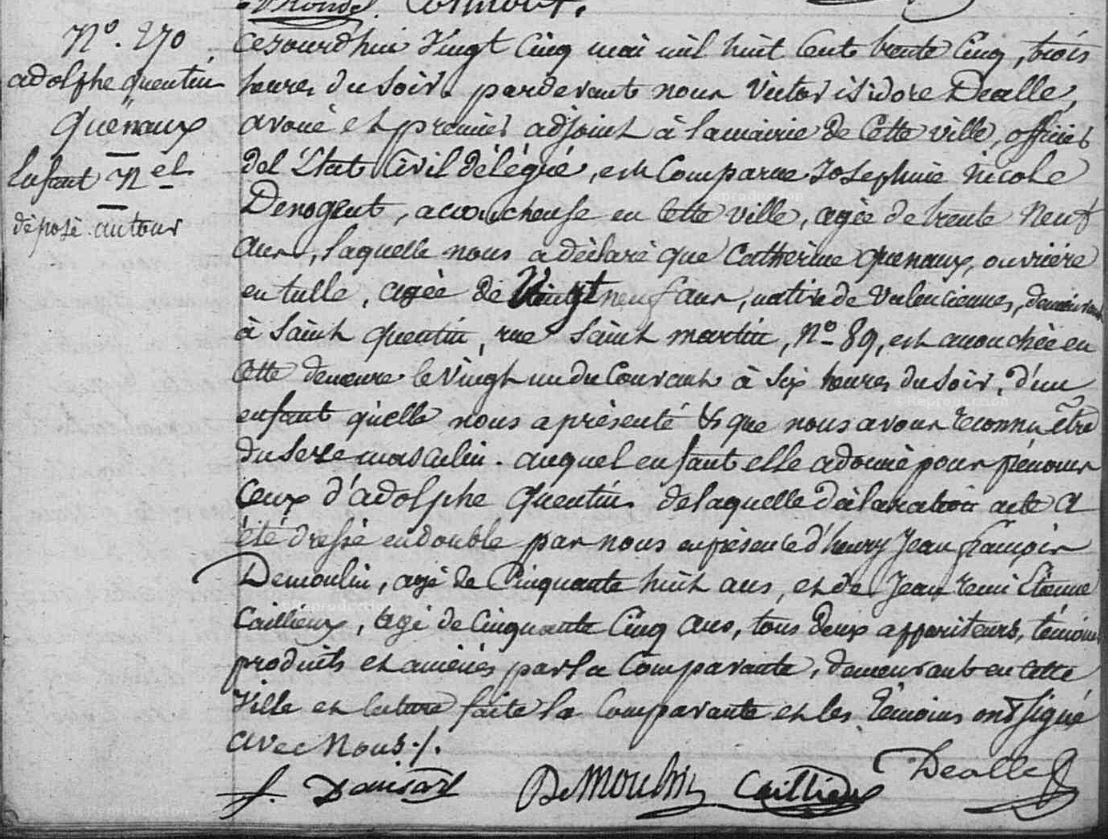 N°. 270
adolphe quentin
Quenaux
Enfant N.el
déposé autour
Cejourdhui Vingt Cinq mai mil huit Cent trente Cinq, trois
heures du Soir. pardevant nous Victor isidore Dealle,
avoué et premier adjoint à la mairie de Cette ville, officier
del'Etat Civil délégué, est Comparue Josephine Nicole
Denogent, accoucheuse en Cette ville, agée de trente Neuf
ans, laquelle nous a déclaré que Catherine Quenaux, ouvrière
en tulle, agée de Vingt neuf ans, native de Valenciennes, demeurant
à Saint Quentin, rue Saint martin, N° 89, est accouchée en
Cette demeure le Vingt un du Courant à Six heures du Soir, d'un
enfant qu'elle nous a présenté & que nous avons reconnu être
du Sexe masculin. auquel enfant elle a donné pour prénoms
Ceux d'adolphe Quentin. de laquelle déclaration acte a
été dressé en double par nous en présence d'henry Jean françois
Demoulin, agé de Cinquante huit ans, et de Jean remi Etienne
Caillieux, agé de Cinquante Cinq ans, tous deux appariteurs, témoins
produits et amenés par la Comparante, demeurant en Cette
Ville et lecture faite la Comparante et les témoins ont Signé
avec Nous./.
DeMoulin Caillieux Dealle